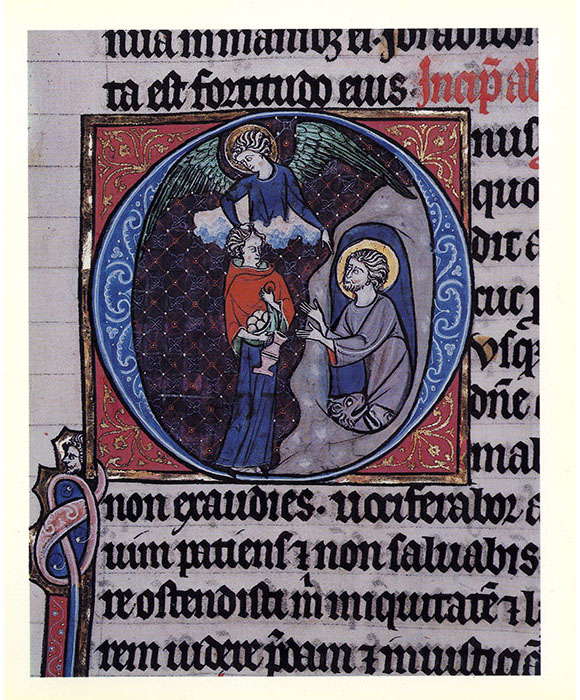 nua in manib; ei. ibi abscondi
ta est fortitudo eius. Incip̄ ab
O nus
quo
dit a
cuc p
usq
dn̄e c
mab
non exaudies. uociferabor a
uim patiens ⁊ non saluabis
re ostendisti m̄ iniquitatē ⁊ la
rem uidere p̄dam ⁊ iniusticiā